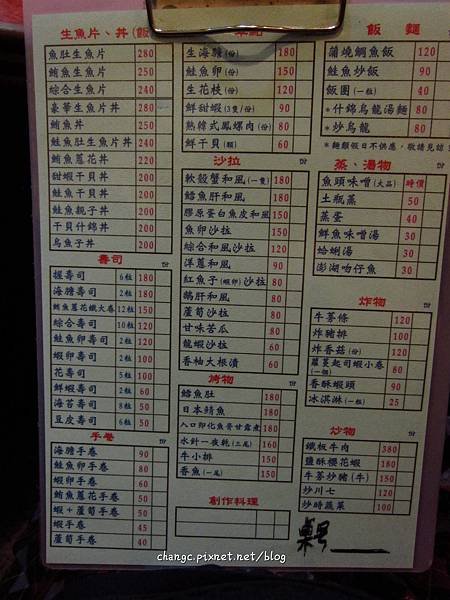 生魚片、丼(飯
魚肚生魚片 280
鮪魚生魚片 250
綜合生魚片 240
豪華生魚片丼 280
鮪魚丼 250
鮭魚肚生魚片丼 240
鮪魚蔥花丼 220
甜蝦干貝丼 200
鮭魚干貝丼 200
鮭魚親子丼 200
干貝什錦丼 200
烏魚子丼 200
壽司 份
握壽司 6粒 180
海膽壽司 2粒 180
鮪魚蔥花鐵火卷 12粒 150
綜合壽司 10粒 120
鮭魚卵壽司 2粒 120
蝦卵壽司 2粒 100
花壽司 5粒 100
鮮蝦壽司 2粒 60
海苔壽司 8粒 50
豆皮壽司 6粒 50
手卷 份
海膽手卷 90
鮭魚卵手卷 80
蝦卵手卷 60
鮪魚蔥花手卷 50
蝦+蘆筍手卷 50
蝦手卷 45
蘆筍手卷 40
單點
生海膽(份) 180
鮭魚卵(份) 150
生花枝(份) 120
鮮甜蝦(3隻/份) 90
熱韓式鳳螺肉(份) 80
鮮干貝(顆) 60
沙拉 份
軟殼蟹和風(一隻) 180
鱈魚肝和風 180
膠原蛋白魚皮和風 150
魚卵沙拉 150
綜合和風沙拉 120
洋蔥和風 90
紅魚子(蝦卵)沙拉 80
鵝肝和風 80
蘆筍沙拉 60
甘味苦瓜 80
龍蝦沙拉 60
香柚大根漬 60
烤物 份
鱈魚肚 180
日本鯖魚 180
入口即化魚膏甘露煮 180
水針一夜乾(三尾) 160
牛小排 150
香魚(一尾) 150
創作料理 份
飯 麵
蒲燒鯛魚飯 120
鮭魚炒飯 90
飯團(一粒) 40
*什錦烏龍湯麵 80
*炒烏龍 80
*麵類假日不供應,敬請見諒
蒸、湯物 份
魚頭味噌(大品) 時價
土瓶蒸 50
蒸蛋 40
鮮魚味噌湯 30
蛤蜊湯 30
澎湖吻仔魚 30
炸物 份
牛蒡條 120
炸豬排 100
炸香菇(份) 120
蘿蔓起司蝦小卷(一個) 80
香酥蝦頭 90
冰淇淋(一粒) 25
炒物 份
鐵板牛肉 380
鹽酥櫻花蝦 180
牛蒡炒豬(牛) 150
炒川七 120
炒時蔬菜 100
桌号
changc.pixnet.net/blog